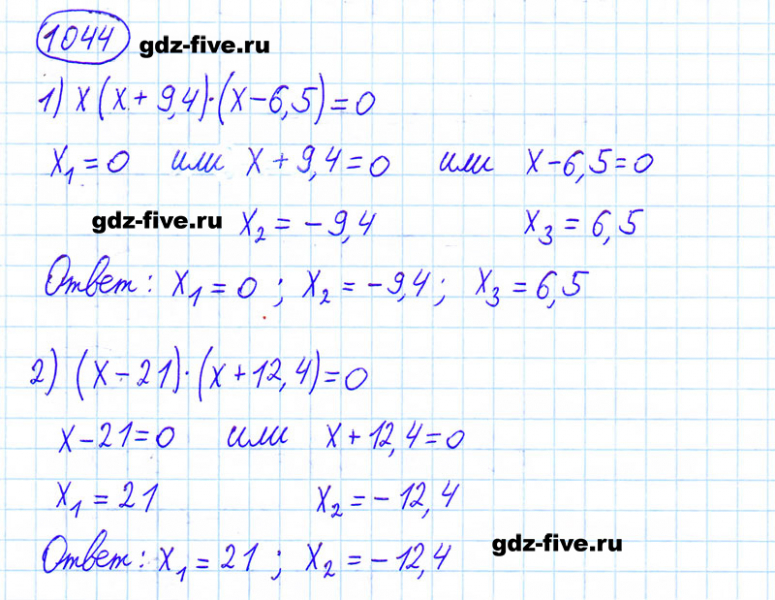 1044 gdz-five.ru
1) x(x+9,4)·(x-6,5)=0
x₁=0 или x+9,4=0 или x-6,5=0
gdz-five.ru x₂=-9,4 x₃=6,5
Ответ: x₁=0; x₂=-9,4; x₃=6,5
2) (x-21)·(x+12,4)=0
x-21=0 или x+12,4=0
x₁=21 x₂=-12,4
Ответ: x₁=21; x₂=-12,4
gdz-five.ru